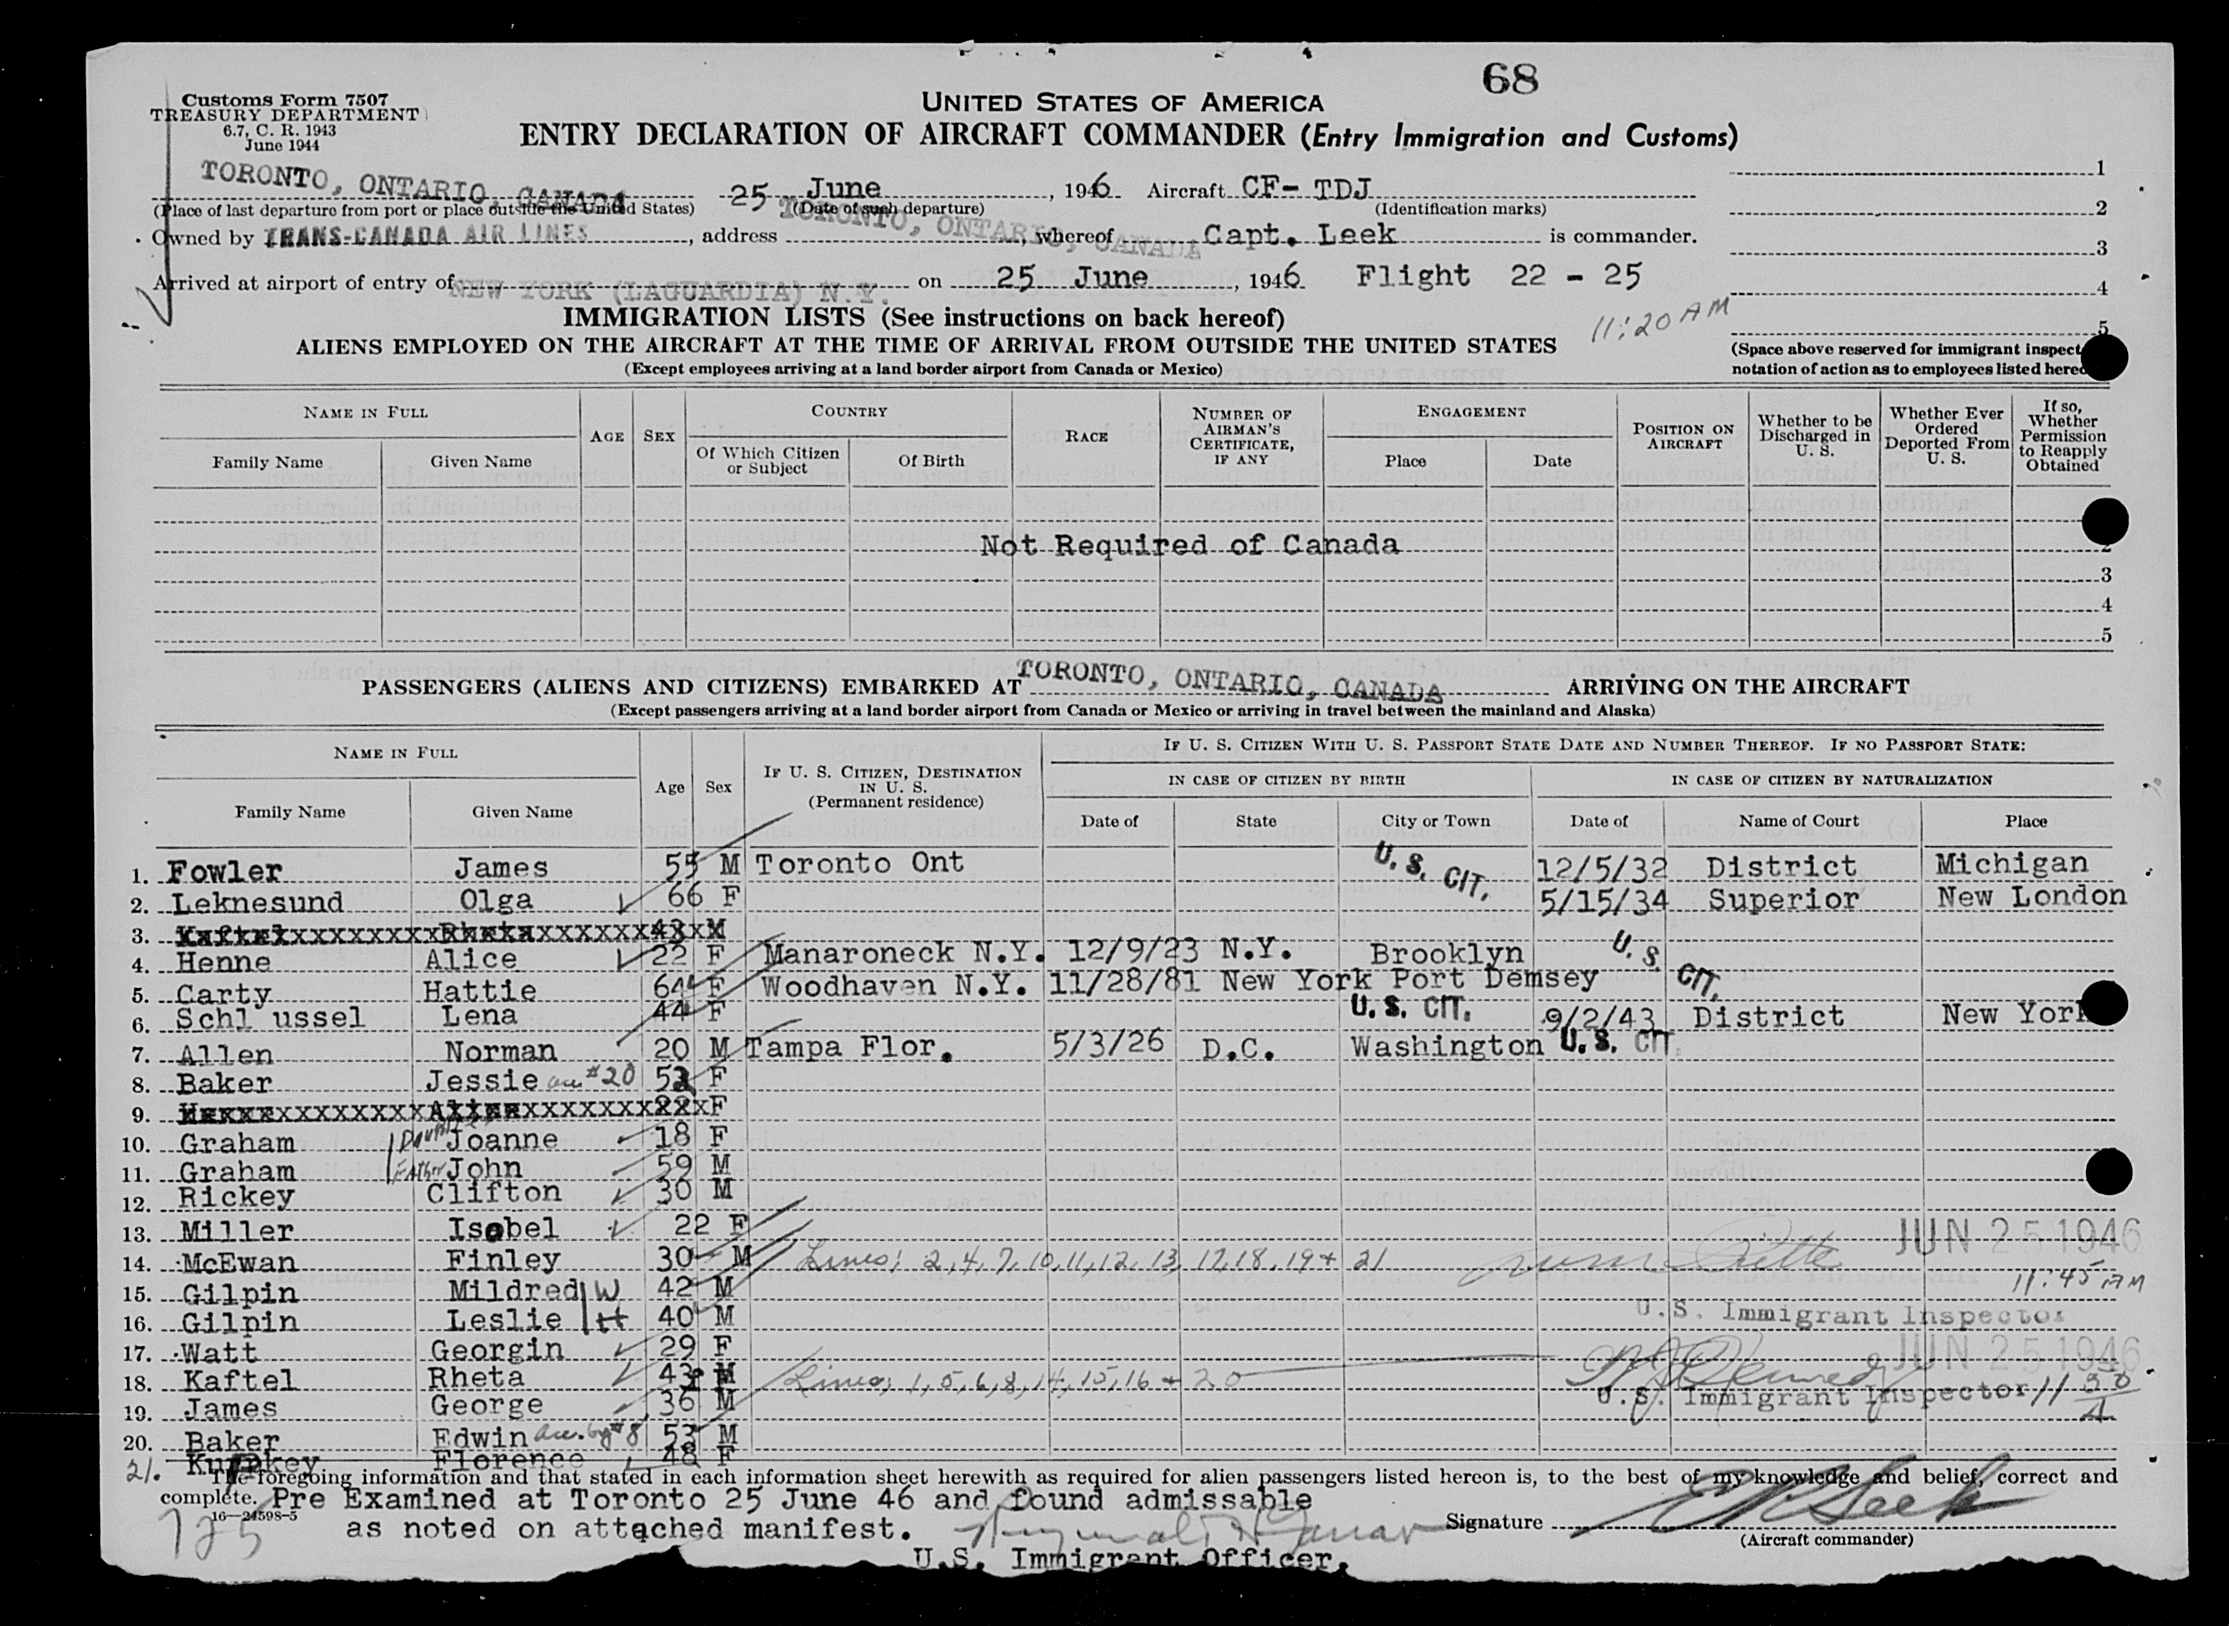 68
Customs Form 7507
TREASURY DEPARTMENT
6.7, C. R. 1943
June 1944
UNITED STATES OF AMERICA
ENTRY DECLARATION OF AIRCRAFT COMMANDER (Entry Immigration and Customs)
TORONTO, ONTARIO, CANADA 25 June, 1946 Aircraft CF- TDJ
(Place of last departure from port or place outside the United States) (Date of such departure) (Identification marks)
Owned by TRANS-CANADA AIR LINES, address TORONTO, ONTARIO, CANADA, whereof Capt. Leek is commander.
Arrived at airport of entry of NEW YORK (LAGUARDIA) N.Y. on 25 June, 1946 Flight 22 - 25
11:20 AM
1
2
3
4
5
(Space above reserved for immigrant inspect
notation of action as to employees listed here
IMMIGRATION LISTS (See instructions on back hereof)
ALIENS EMPLOYED ON THE AIRCRAFT AT THE TIME OF ARRIVAL FROM OUTSIDE THE UNITED STATES
(Except employees arriving at a land border airport from Canada or Mexico)
NAME IN FULL AGE SEX COUNTRY RACE NUMBER OF AIRMAN'S CERTIFICATE, IF ANY ENGAGEMENT POSITION ON AIRCRAFT Whether to be Discharged in U. S. Whether Ever Ordered Deported From U. S. If so, Whether Permission to Reapply Obtained
Family Name Given Name Of Which Citizen or Subject Of Birth Place Date
Not Required of Canada
2
3
4
5
PASSENGERS (ALIENS AND CITIZENS) EMBARKED AT TORONTO, ONTARIO, CANADA ARRIVING ON THE AIRCRAFT
(Except passengers arriving at a land border airport from Canada or Mexico or arriving in travel between the mainland and Alaska)
NAME IN FULL Age Sex IF U. S. CITIZEN, DESTINATION IN U. S. (Permanent residence) IF U. S. CITIZEN WITH U. S. PASSPORT STATE DATE AND NUMBER THEREOF. IF NO PASSPORT STATE:
IN CASE OF CITIZEN BY BIRTH IN CASE OF CITIZEN BY NATURALIZATION
Family Name Given Name Date of State City or Town Date of Name of Court Place
1. Fowler James 55 M Toronto Ont U. S. CIT. 12/5/32 District Michigan
2. Leknesund Olga 66 F 5/15/34 Superior New London
3. Kaftel Rheta 43 M
4. Henne Alice 22 F Manaroneck N.Y. 12/9/23 N.Y. Brooklyn U. S. CIT.
5. Carty Hattie 64 F Woodhaven N.Y. 11/28/81 New York Port Demsey
6. Schl ussel Lena 44 F U. S. CIT. 9/2/43 District New York
7. Allen Norman 20 M Tampa Flor. 5/3/26 D.C. Washington U. S. CIT.
8. Baker Jessie acc #20 52 F
9. Henne Alice 22 F
10. Graham Joanne 18 F
11. Graham Father John 59 M
12. Rickey Clifton 30 M
13. Miller Isobel 22 F
14. McEwan Finley 30 M Lines; 2,4,7,10,11,12,13, 17,18,19+ 21 JUN 25 1946
15. Gilpin Mildred W 42 M 11:45 AM
16. Gilpin Leslie H 40 M U.S. Immigrant Inspector
17. Watt Georgin 29 F JUN 25 1946
18. Kaftel Rheta 43 F Lines; 1,5,6,8,14,15,16 + 20
19. James George 36 M U.S. Immigrant Inspector 11 50 A
20. Baker Edwin acc. by #8 53 M
21. Florence 48 F
The foregoing information and that stated in each information sheet herewith as required for alien passengers listed hereon is, to the best of my knowledge and belief, correct and
complete. Pre Examined at Toronto 25 June 46 and found admissable
16—24598-5
as noted on attached manifest.
Signature
(Aircraft commander)
U.S. Immigrant Officer.